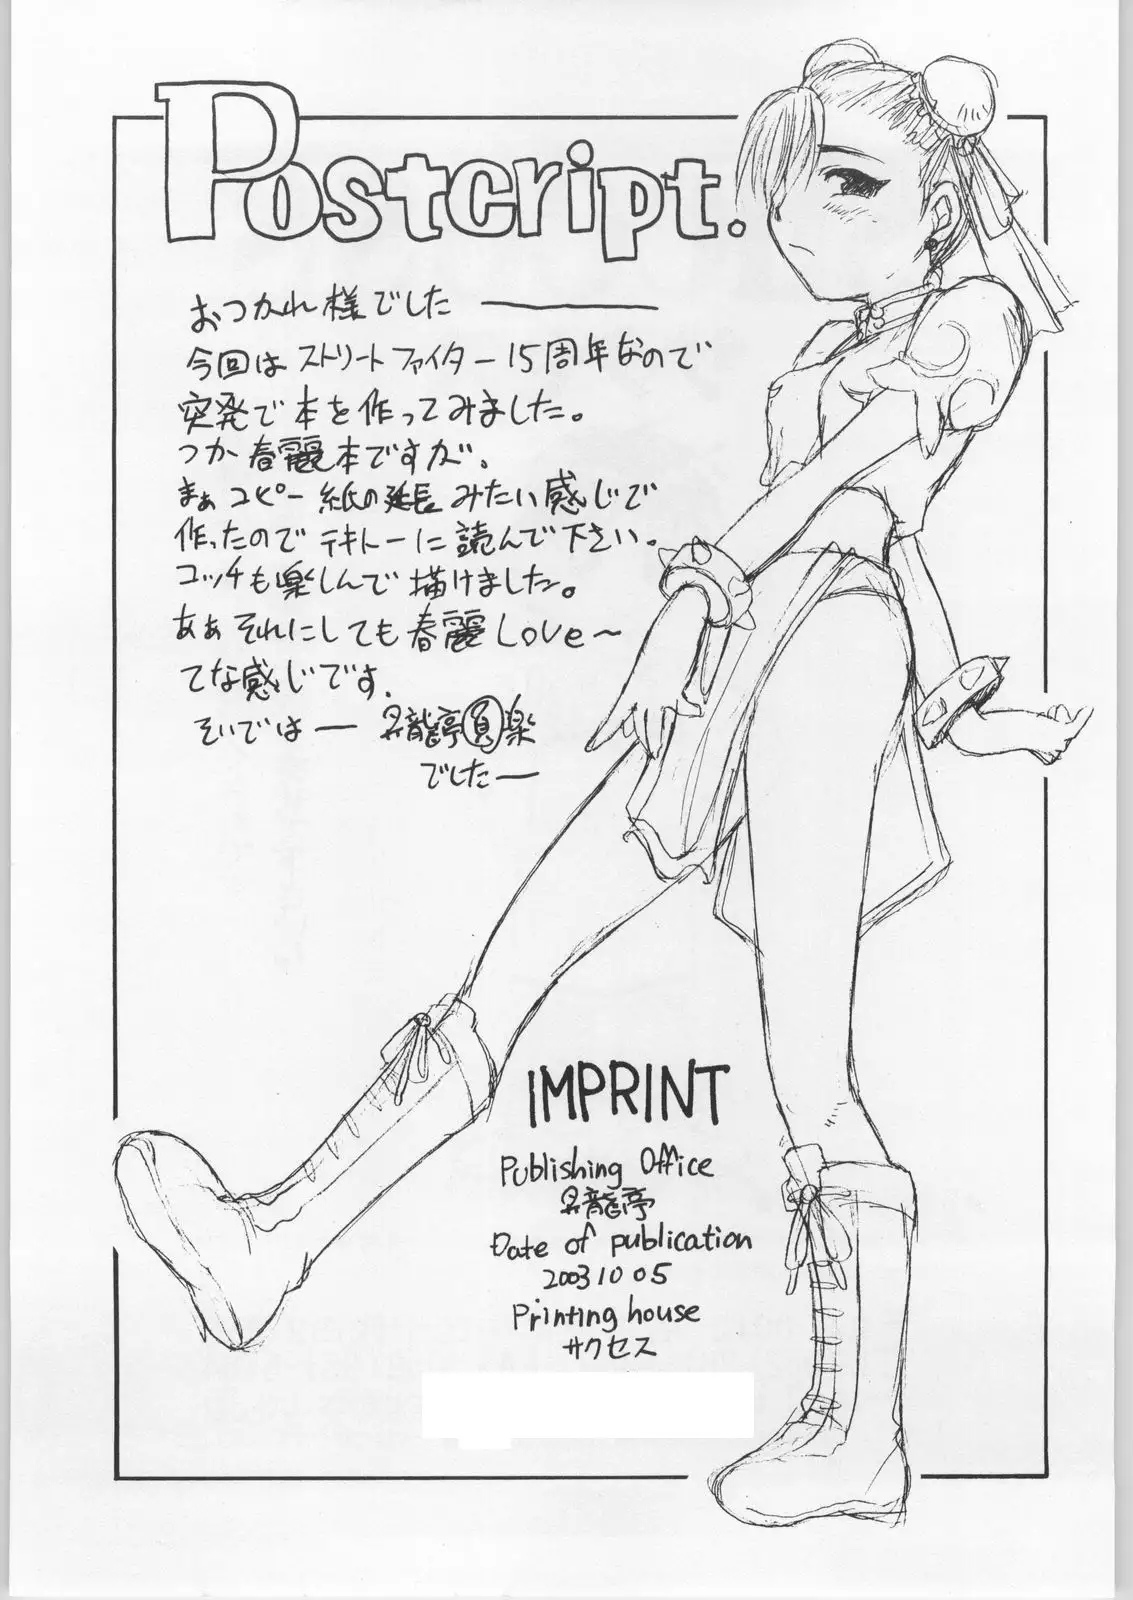 Postcript.
おつかれ様でした ―
今回は ストリートファイター 15周年なので
突発で 本を 作ってみました。
つか 春麗本ですが、
まぁ コピー 紙の延長 みたい感じで
作ったので テキトーに 読んで下さい。
コッチも楽しんで 描けました。
あぁ それにしても 春麗 Love～
てな感じです.
そいでは ― 昇龍亭 圓楽
でした ―
IMPRINT
Publishing Office
昇龍亭
Date of publication
2003 10 05
Printing house
サクセス